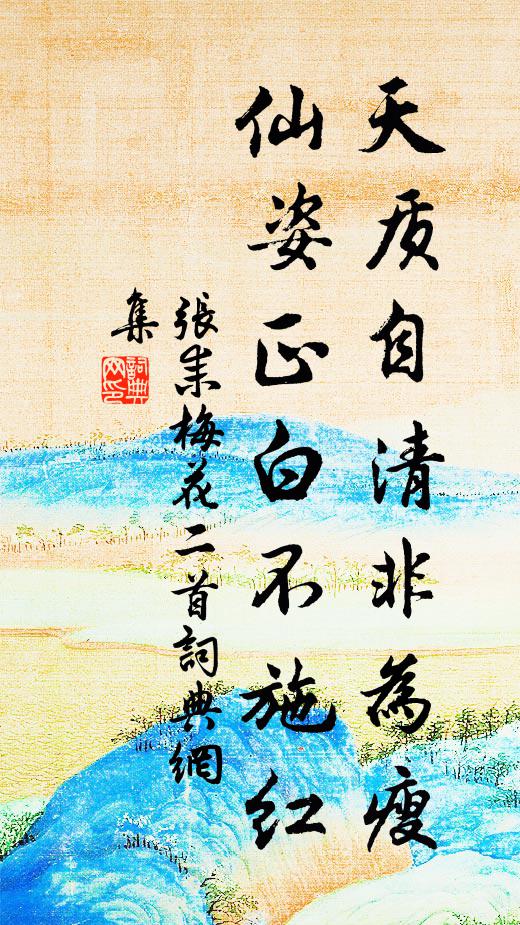 天质自清非為瘦
仙姿正白不施紅
張耒梅花二首詞典網
集
詞典
网印